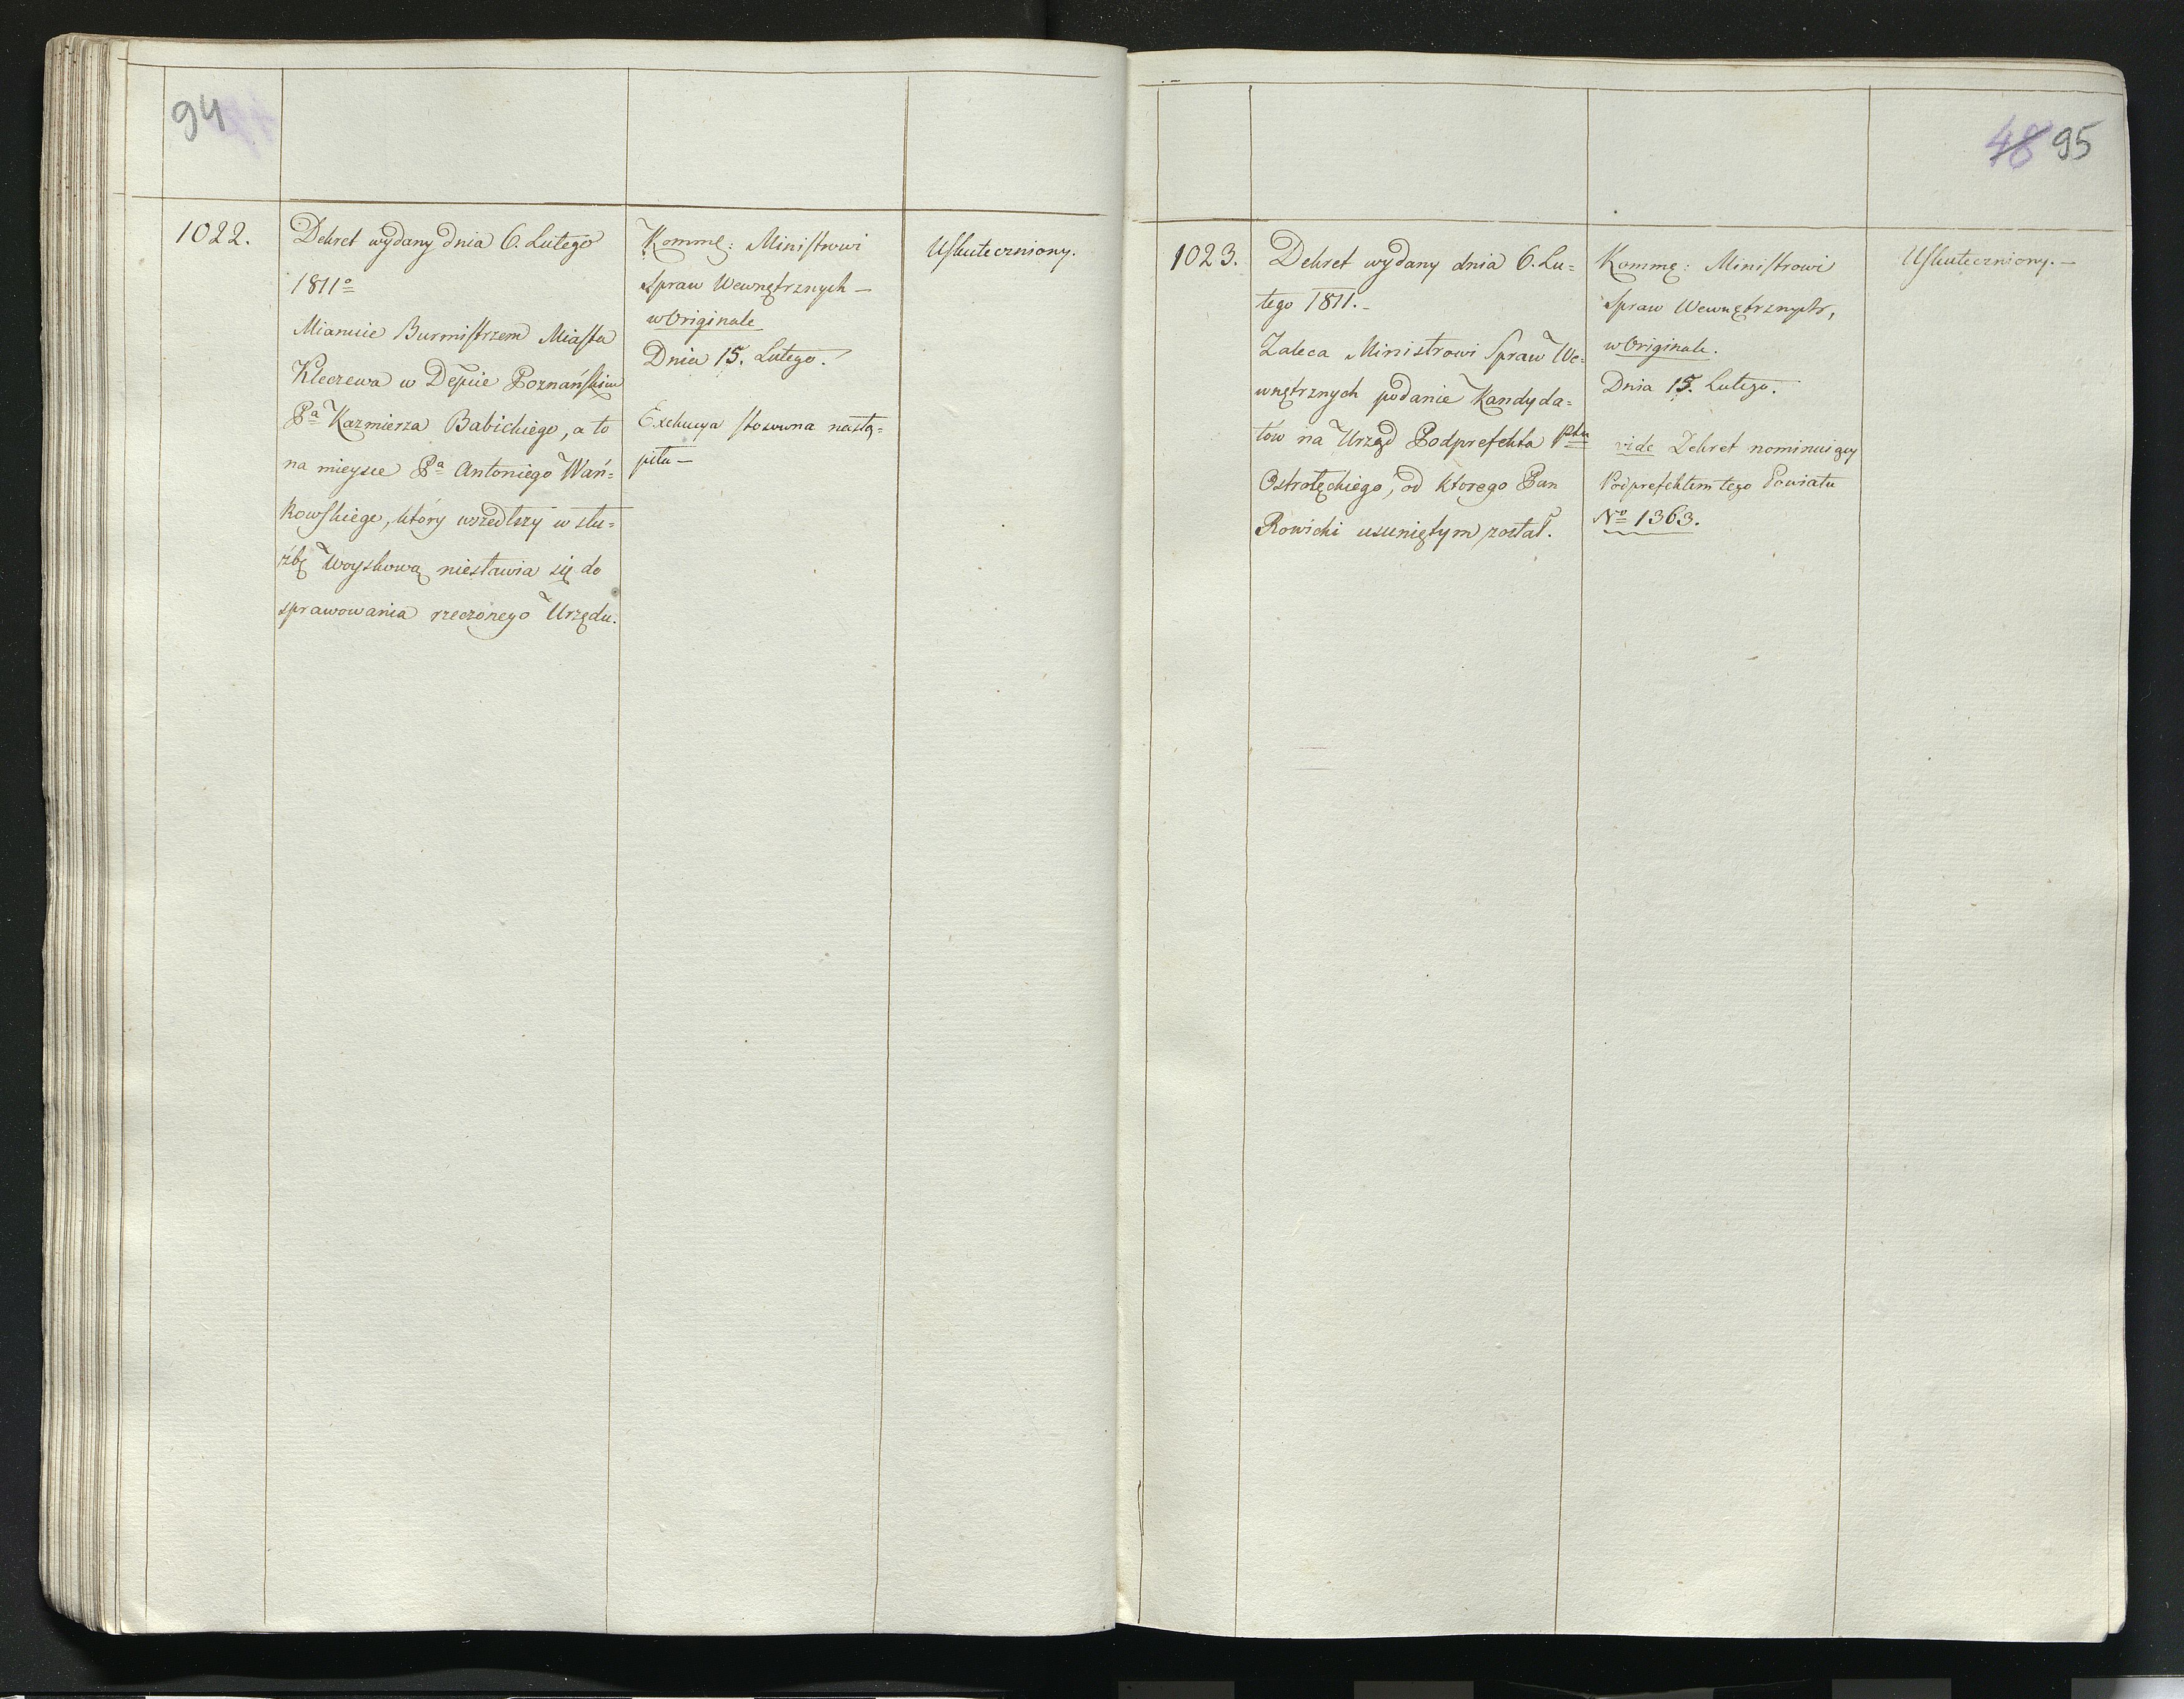 94
1022.
Dekret wydany dnia 6. Lutego
1811o
Mianuie Burmistrzem Miasta
Kleczewa w Depcie Poznańskim
Pa Kazmierza Babickiego, a to
na mieysce Pa Antoniego Wań=
kowskiego, który wszedłszy w słu=
żbę Woyskową niestawia się do
sprawowania rzeczonego Urzędu.
Kommę: Ministrowi
Spraw Wewnętrznych —
w Originale
Dnia 15. Lutego.
Exekucya stosowna nastą=
piła —
Uskuteczniony.
48 95
1023.
Dekret wydany dnia 6. Lu=
tego 1811. -
Zaleca Ministrowi Spraw We=
wnętrznych podanie Kandyda=
tów na Urząd Podprefekta Ptu
Ostrołęckiego, od ktorego Pan
Rowicki usuniętym został.
Kommę: Ministrowi
Spraw Wewnętrznych,
w Originale.
Dnia 15. Lutego.
vide Dekret nominuiący
Podprefektem tego Powiatu
No 1363.
Uskuteczniony. —